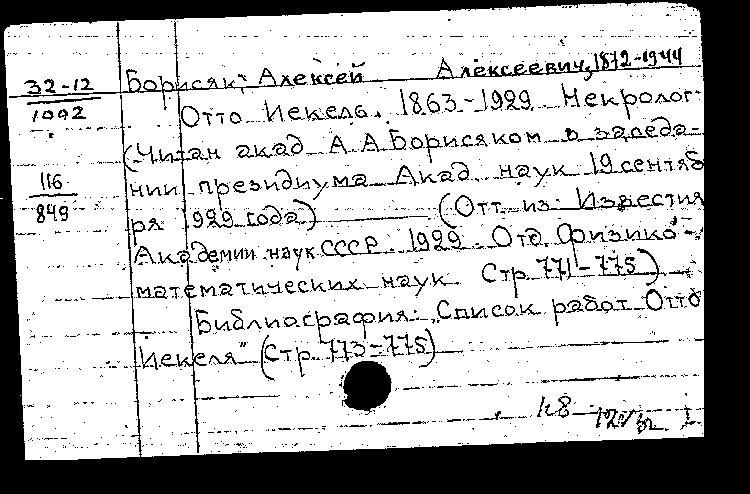 32-12
1092
116
849
Борисяк, Алексей Алексеевич, 1872-1944
Отто Иекель. 1863-1929. Некролог.
(Читан акад. А.А.Борисяком в заседа-
нии президиума Акад. наук 19 сентяб-
ря 1929 года.) (Отт. из: Известия
Академии наук СССР. 1929. Отд. Физико-
математических наук. Стр. 771-775)
Библиография: "Список работ Отто
Иекеля" (Стр. 773-775)